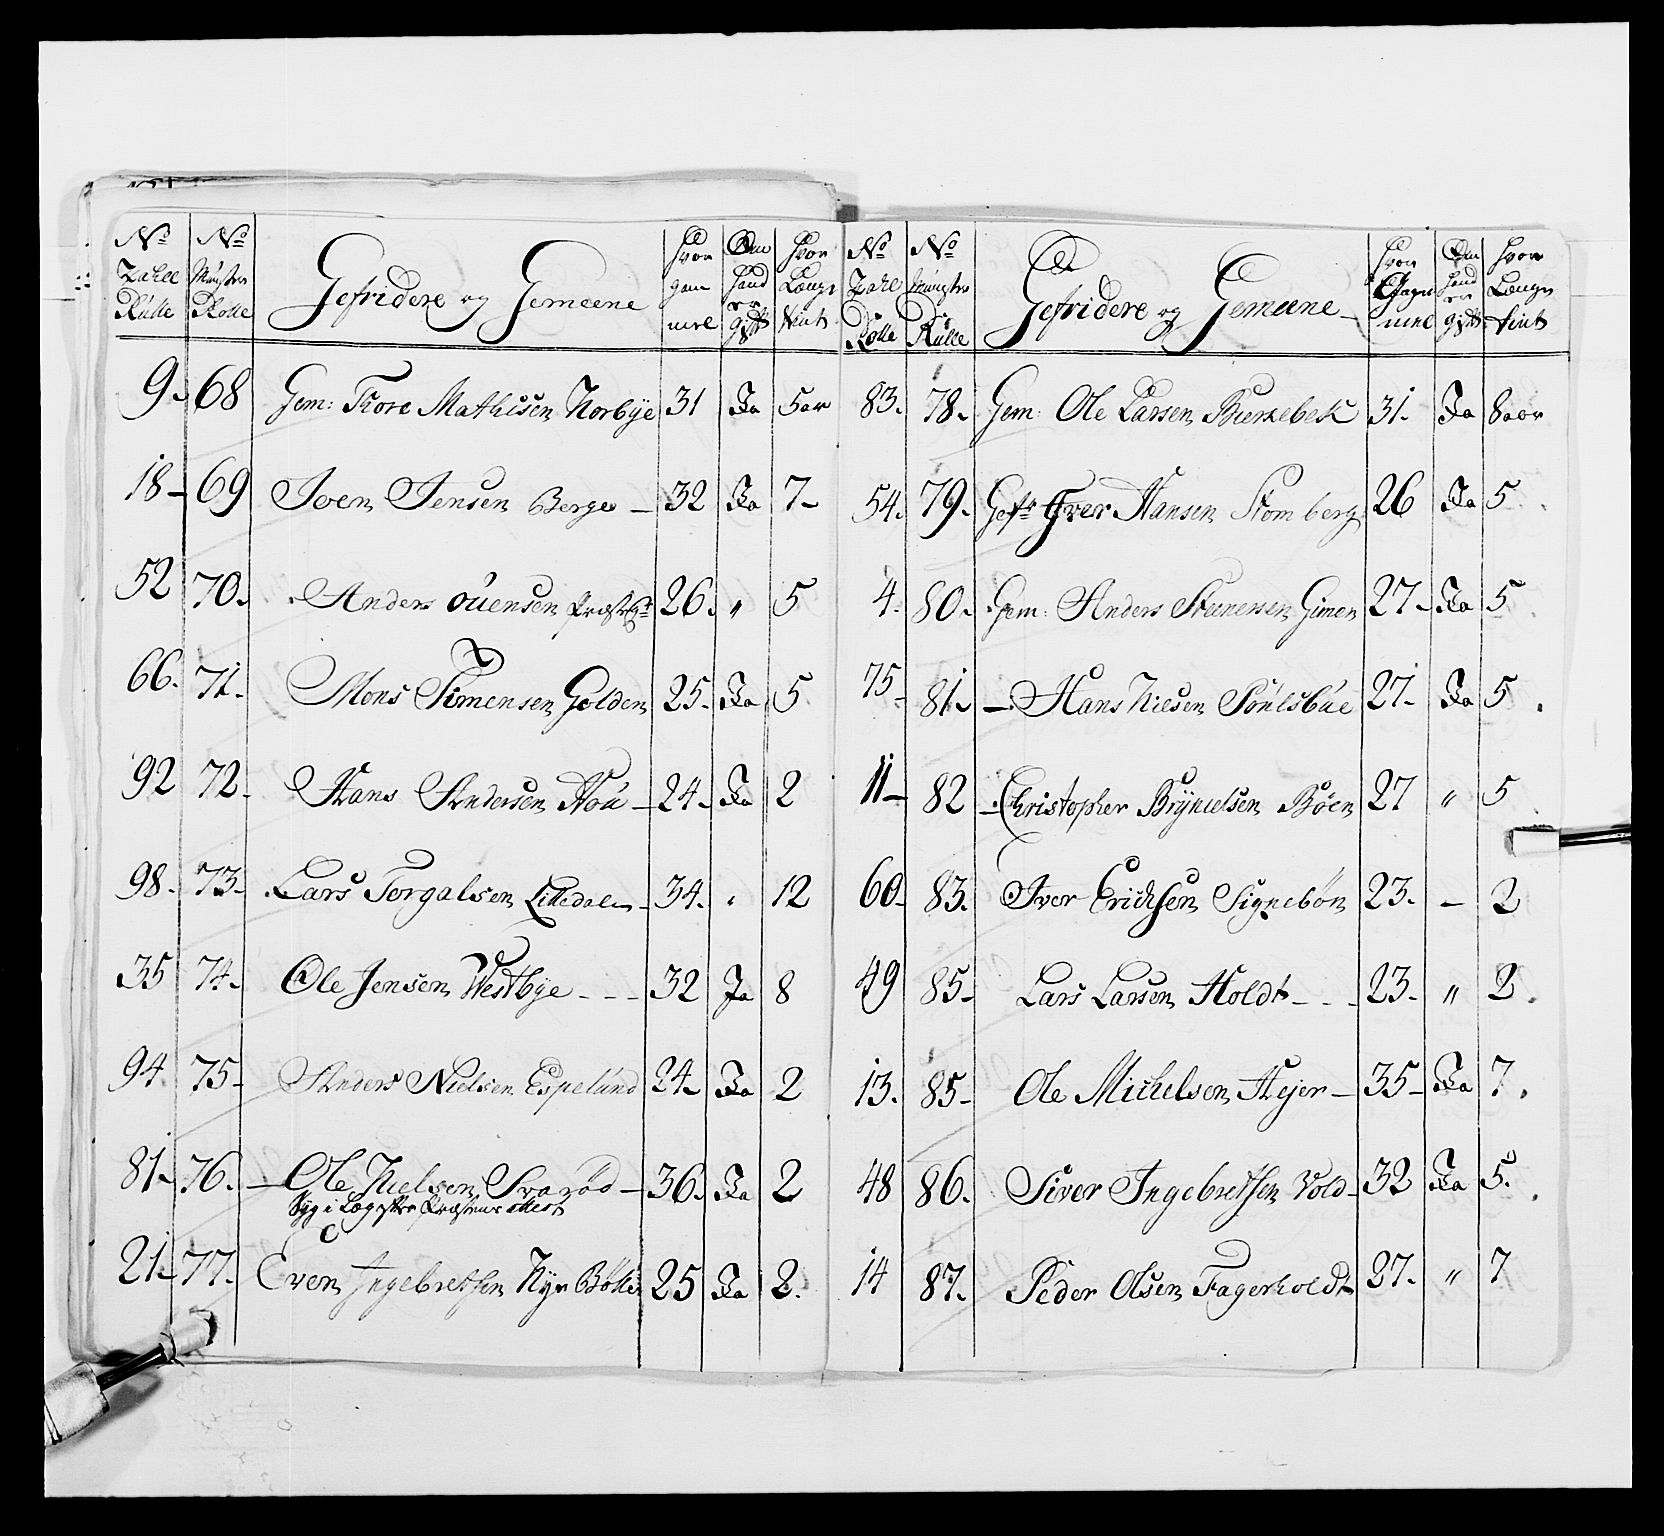 No No Gefridere og Gemeene Hvor Om Hvor
Zahle Mynster gam hand Længe
Rulle Rolle mel er gift tient
9. 68 Gem: Tore Mathisen Norbye 31 Ja 5 aar
18 - 69 Joen Jensen Berge - 32 Ja 7 -
52 70. Anders Ouensen 26. " 5
66. 71. Mons Simensen Golden 25. Ja 5
92 72. Hans Andersen Hou - 24. Ja 2
98. 73. Lars Torgalsen Lilledalen - 34. " 12
35 74. Ole Jensen Westbye - - - 32 Ja 8
94 75 - Anders Nielsen Espelund 24. Ja 2
81. 76. - Ole Nielsen Svarød - 36. Ja 2
Syg i Præstens Attest
21 - 77. Even Ingebretsen Nye Bølle 25 Ja 2.
No No Gefridere og Gemeene - Hvor Om Hvor
Zahl Mynster Gam hand Længe
Rolle Rulle mel er gift tient
83. 78. Gem: Ole Larsen Bierkebek 31. Ja 8 aar
54. 79. Gefr Iver Hansen Stomberg 26 Ja 5
4. 80. Gem: Anders Steenersen Gimen 27 - Ja 5
75 - 81. - Hans Nielsen 27. Ja 5
11 - 82 - Christopher Brynielsen Bøen 27 " 5
60. 83. Iver Erichsen Signebøn 23. - 2
49 85. Lars Larsen Holdt - - - 23. " 2
13. 85 - Ole Michelsen Hejer - 35 - Ja 7.
48 86. Siver Ingebretsen Vold - 32 Ja 5.
14 87. Peder Olsen Fagerholdt 27. " 7